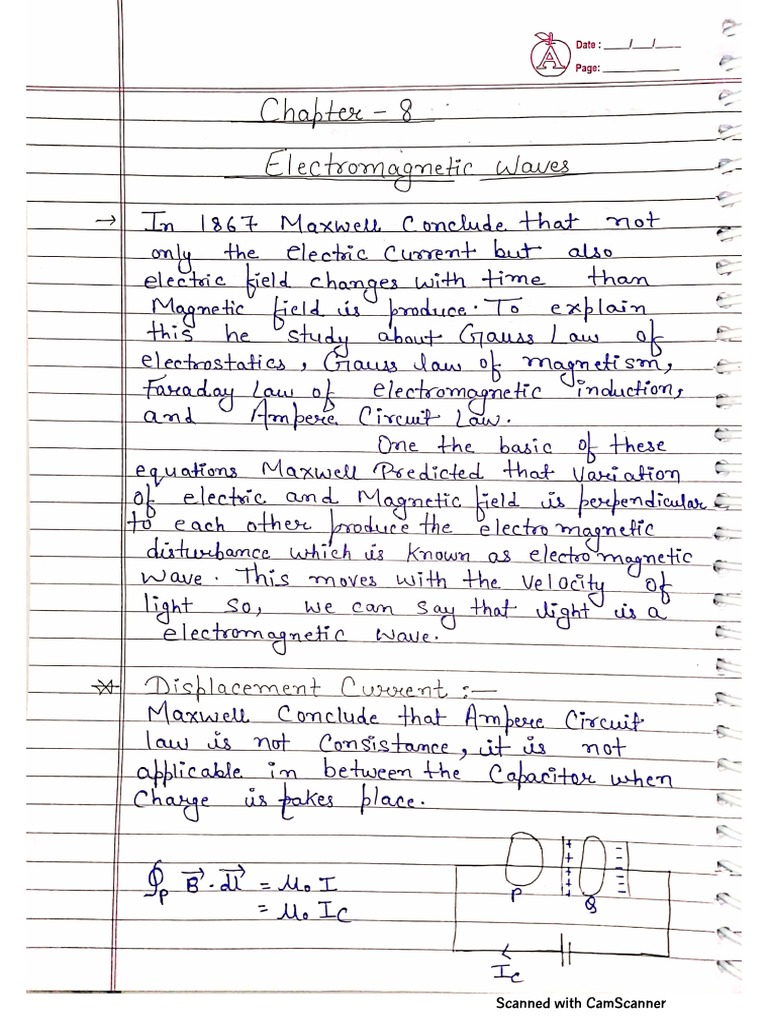 Date : ___/___/____
Page: ____________
Chapter - 8
Electromagnetic Waves
→ In 1867 Maxwell Conclude that not
only the electric current but also
electric field changes with time than
Magnetic field is produce. To explain
this he study about Gauss Law of
electrostatics, Gauss law of magnetism,
Faraday Law of electromagnetic induction,
and Ampere Circuit Law.
One the basic of these
equations Maxwell Predicted that Variation
of electric and Magnetic field is perpendicular
to each other produce the electromagnetic
disturbance which is known as electromagnetic
wave. This moves with the velocity of
light so, we can say that light is a
electromagnetic wave.
Displacement Current :—
Maxwell Conclude that Ampere Circuit
law is not Consistance, it is not
applicable in between the Capacitor when
Charge is pakes place.
∮p B⃗ · dl⃗ = μ₀ I
= μ₀ Ic
P
Q
+ + + +
- - - -
Ic
Scanned with CamScanner